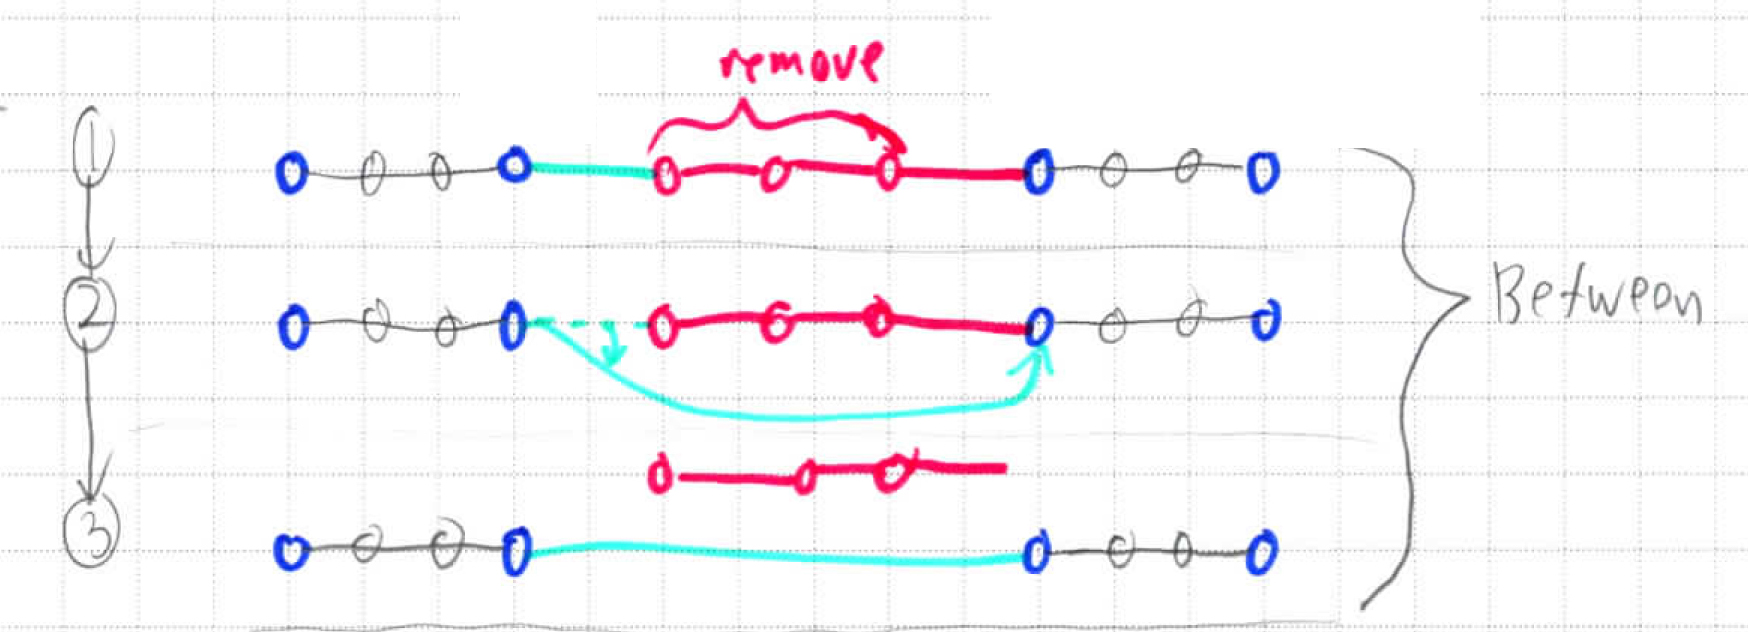 remove
1
2
Between
3